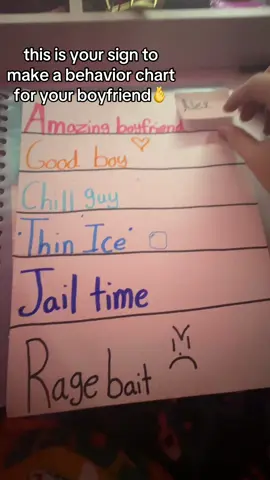 this is your sign to
make a behavior chart
for your boyfriend🫰
Alex
Amazing boyfriend
Good boy
Chill guy
Thin Ice
Jail time
Rage bait